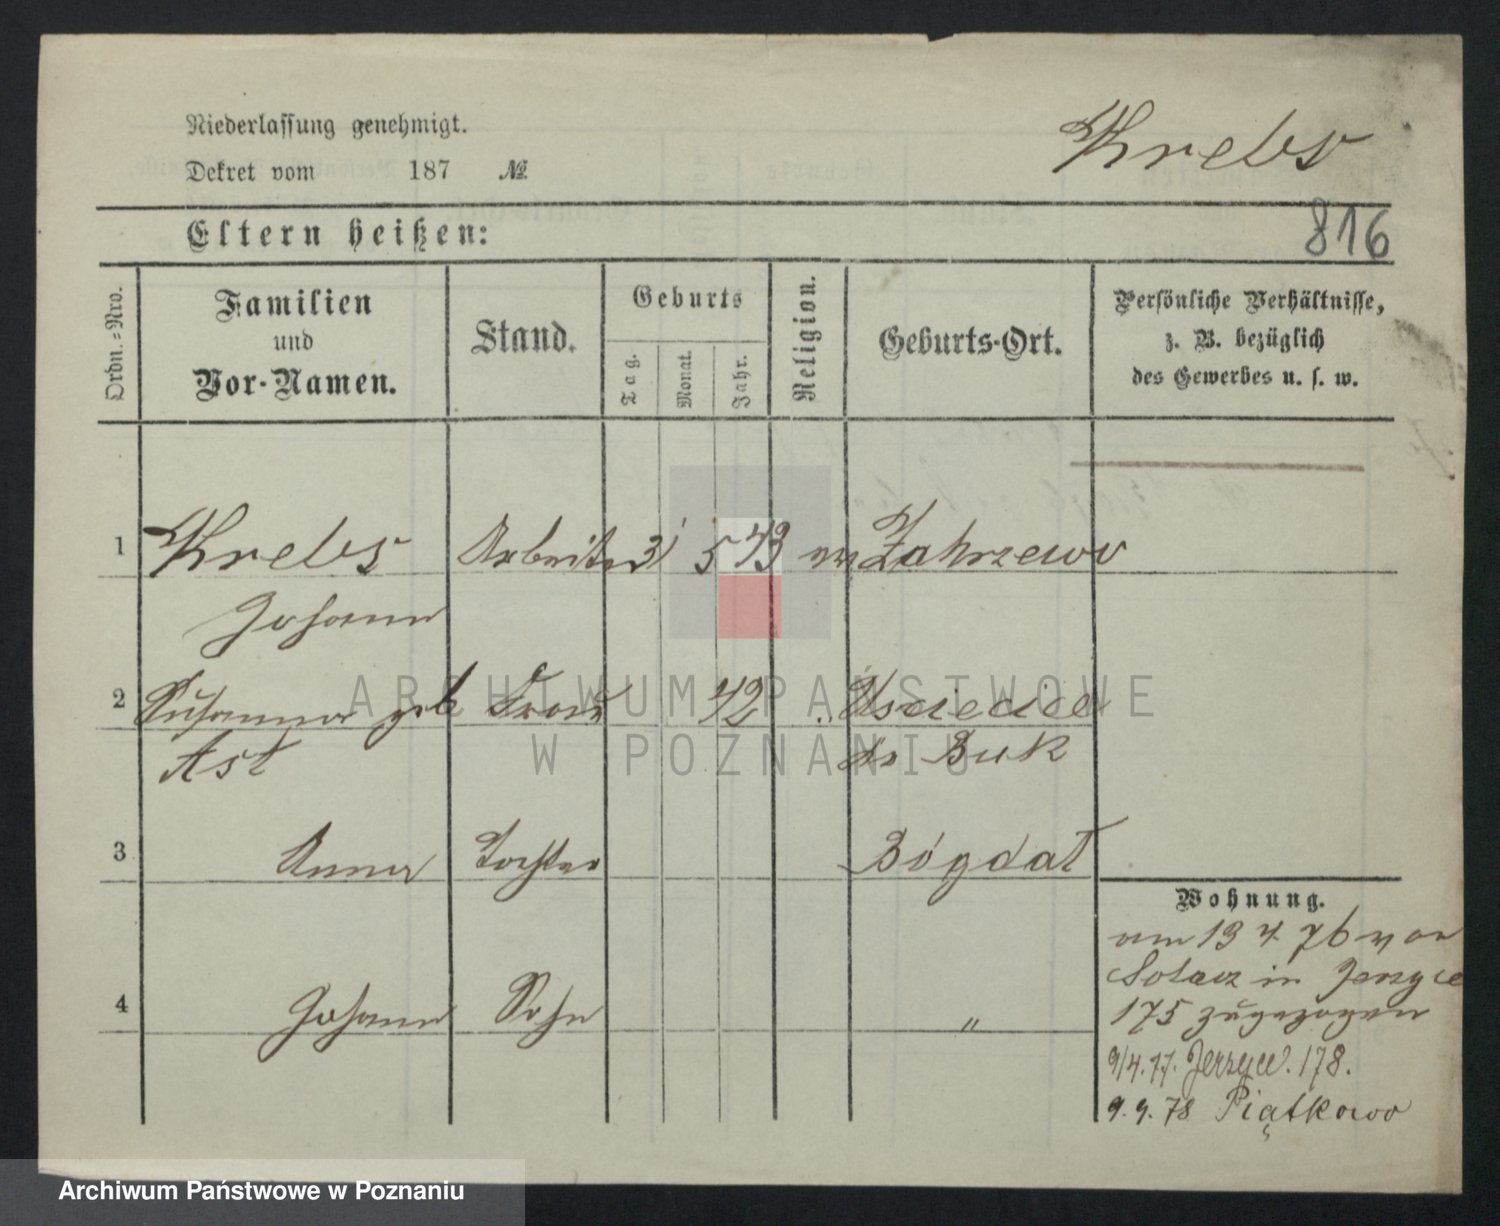 Niederlassung genehmigt.
Krebs
Dekret vom 187 №
Eltern heißen:
816
Ordn.=Nro.
Familien
und
Vor-Namen.
Stand.
Geburts
Tag.
Monat.
Jahr.
Religion.
Geburts-Ort.
Persönliche Verhältnisse,
z. B. bezüglich
des Gewerbes u. s. w.
1 Krebs Arbeiter 31 5 43 Zakrzewo
Johann
2 Susanna geb Frau 42 "
Ast Kr Buk
3 Anna Tochter Bógdat
4 Johann Sohn "
Wohnung.
am 13 4 76 von
Solacz in Jerzyce
175 zugezogen
9/4.77. Jerzyce. 178.
9.9.78 Piątkowo
ARCHIWUM PAŃSTWOWE
W POZNANIU
Archiwum Państwowe w Poznaniu